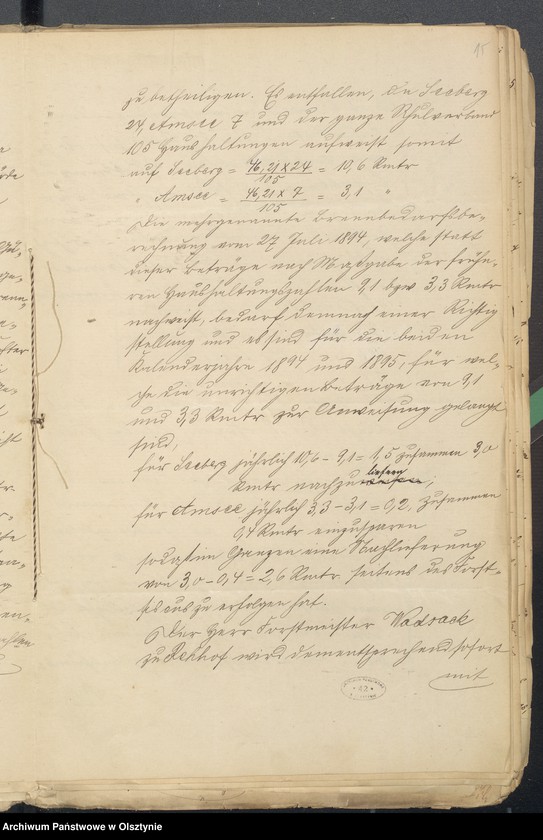 15
zu betheiligen. Es entfallen, da Seeberg
24, Amsee 7 und der ganze Schulverband
105 Haushaltungen aufweist somit
auf Seeberg = 46,21 x 24 / 105 = 10,6 Rmtr
" Amsee = 46,21 x 7 / 105 = 3,1 "
Die mehrgenannte Brennbedarfsbe-
rechnung vom 27 Juli 1894, welche statt
dieser Beträge nach Maßgabe der frühe-
ren Haushaltungszahlen 9,1 bzw 3,3 Rmtr
nachweist, bedarf demnach einer Richtig
stellung und es sind für die beiden
Kalenderjahre 1894 und 1895, für wel-
che die unrichtigen Beträge von 9,1
und 3,3 Rmtr zur Anweisung gelangt
sind,
für Seeberg jährlich 10,6 - 9,1 = 1,5 zusammen 3,0
Rmtr nachzuliefern;
für Amsee jährlich 3,3 - 3,1 = 0,2, zusammen
0,4 Rmtr einzusparen
sodaß im Ganzen eine Nachlieferung
von 3,0 - 0,4 = 2,6 Rmtr seitens des Forst-
fiscus zu erfolgen hat.
Der Herr Forstmeister Wadsack
zu Rehhof wird dementsprechend sofort
mit
42
Archiwum Państwowe w Olsztynie